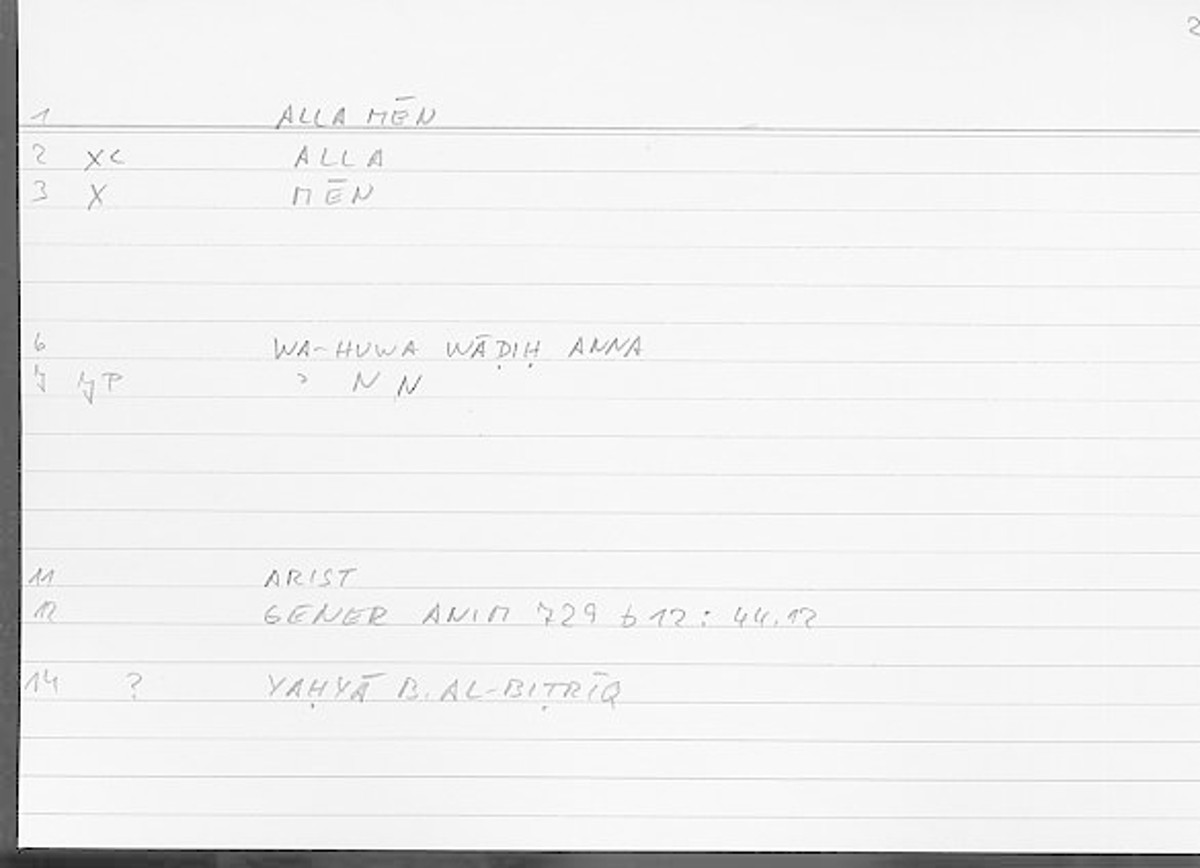 2
1 ALLA MĒN
2 XC ALLA
3 X MĒN
6 WA-HUWA WĀḌIḤ ANNA
7 YP ʾ N N
11 ARIST
12 GENER ANIM 729 b 12 : 44.12
14 ? YAḤYĀ B. AL-BIṬRĪQ